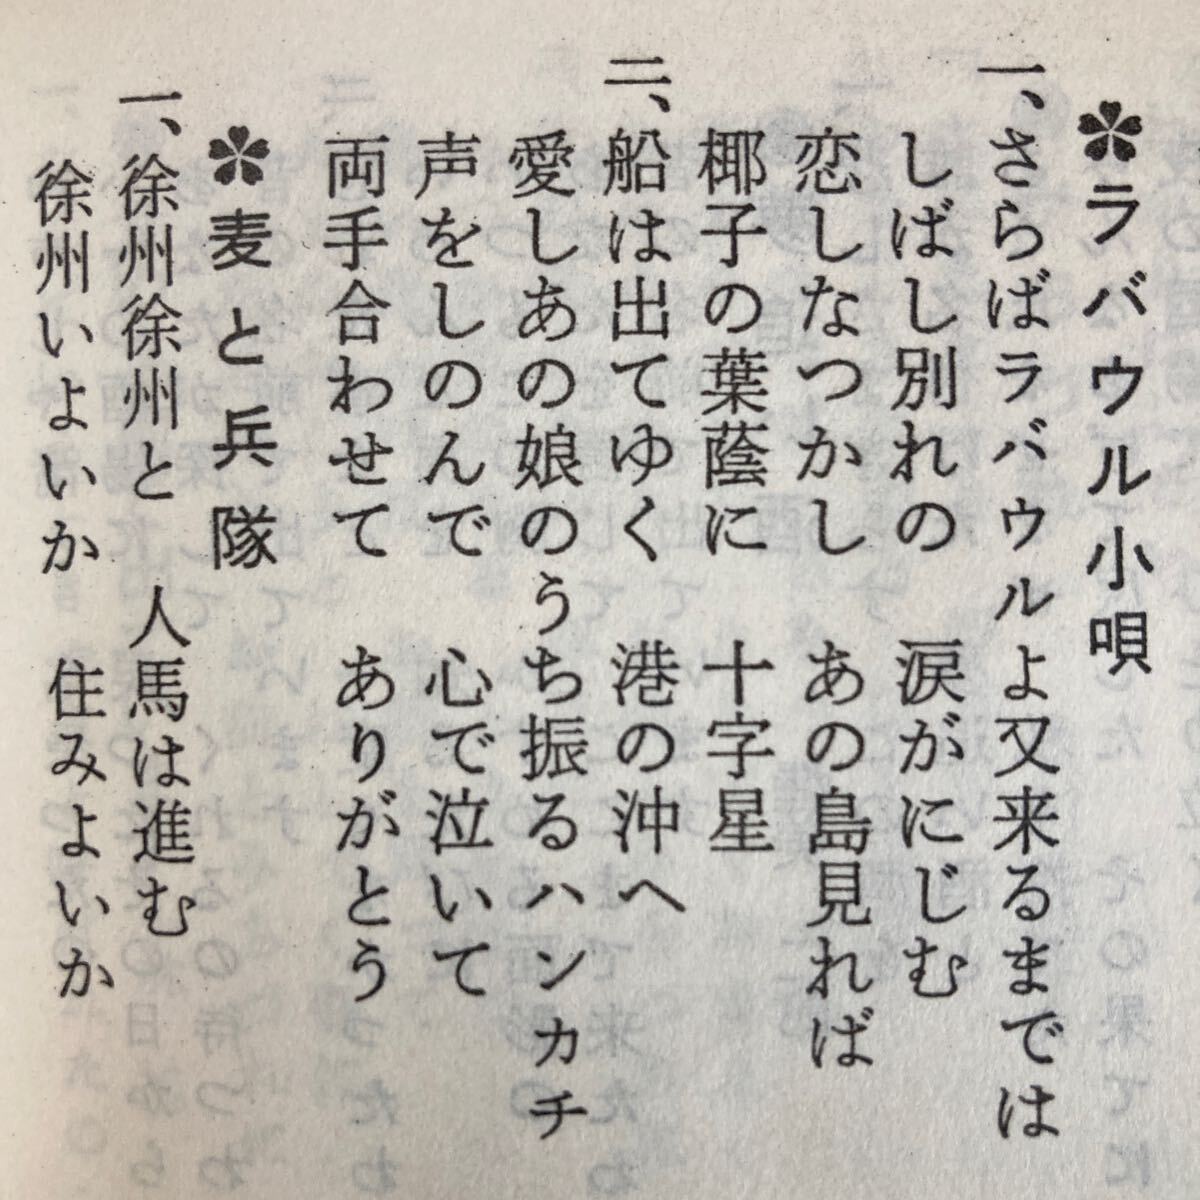 ✽ラバウル小唄
一、さらばラバウルよ又来るまでは
しばし別れの　涙がにじむ
恋しなつかし　あの島見れば
椰子の葉蔭に　十字星
二、船は出てゆく　港の沖へ
愛しあの娘のうち振るハンカチ
声をしのんで　心で泣いて
両手合わせて　ありがとう
✽麦と兵隊
一、徐州徐州と　人馬は進む
徐州いよいか　住みよいか